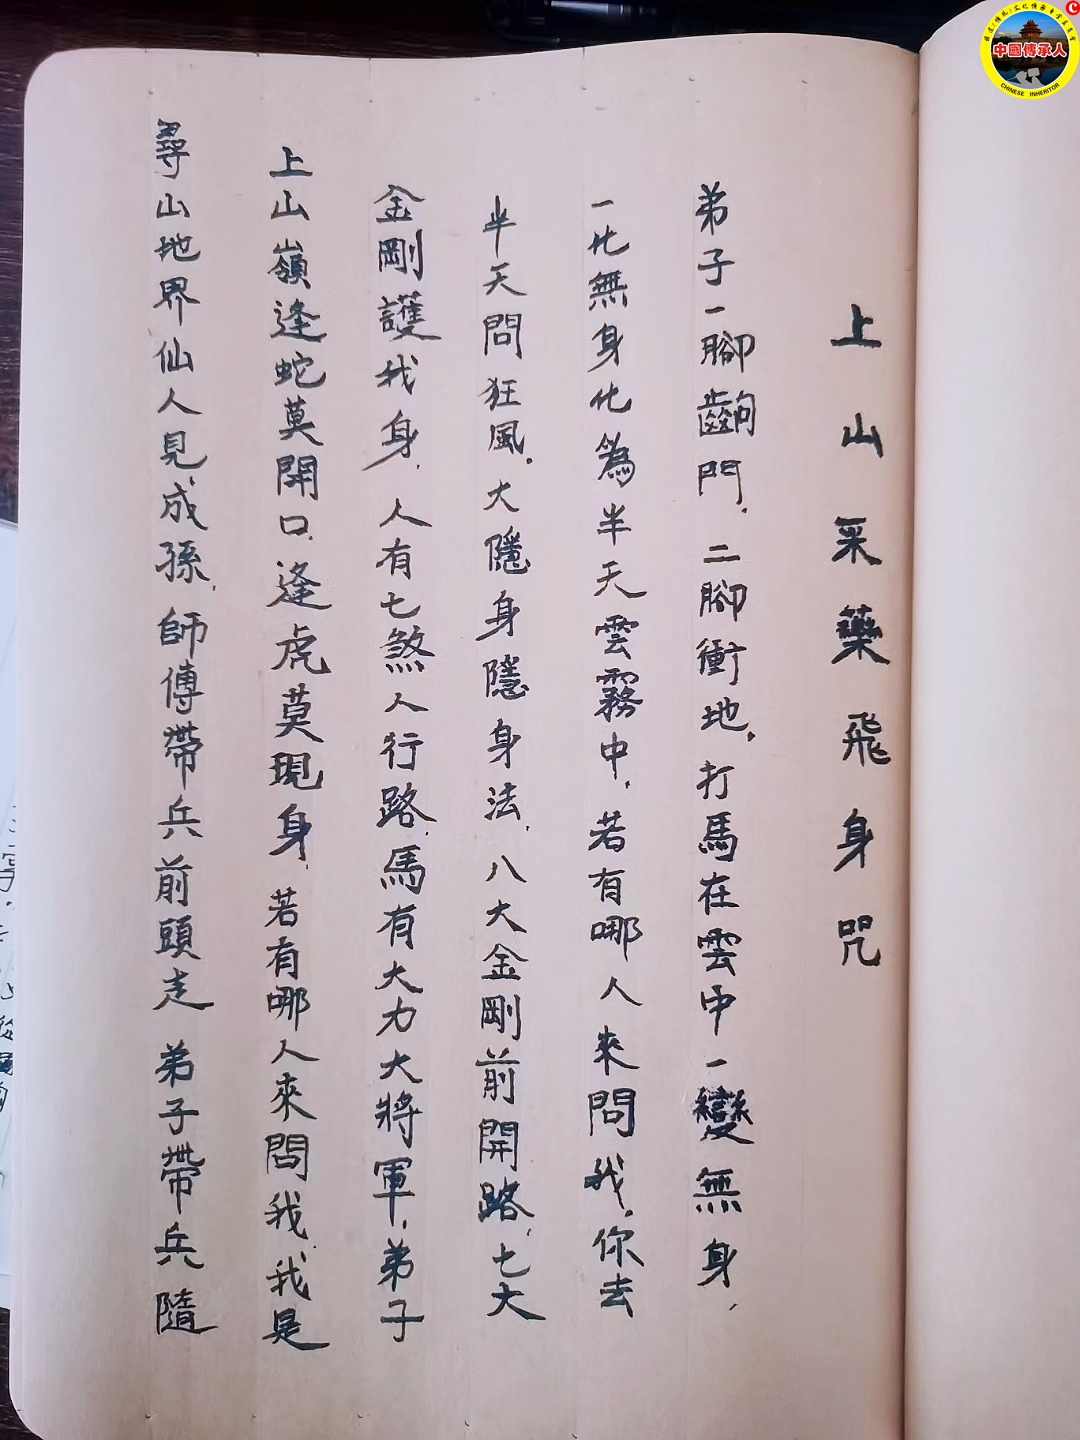 上山采藥飛身咒
弟子一腳齣門，二腳衝地，打馬在雲中一變無身，
一化無身化為半天雲霧中，若有哪人來問我，你去
半天問狂風。大隱身隱身法，八大金剛前開路，七大
金剛護我身，人有七煞人行路，馬有大力大將軍，弟子
上山嶺逢蛇莫開口，逢虎莫現身，若有哪人來問我，我是
尋山地界仙人見成孫，師傅帶兵前頭走 弟子帶兵隨
中國傳承人
CHINESE INHERITOR